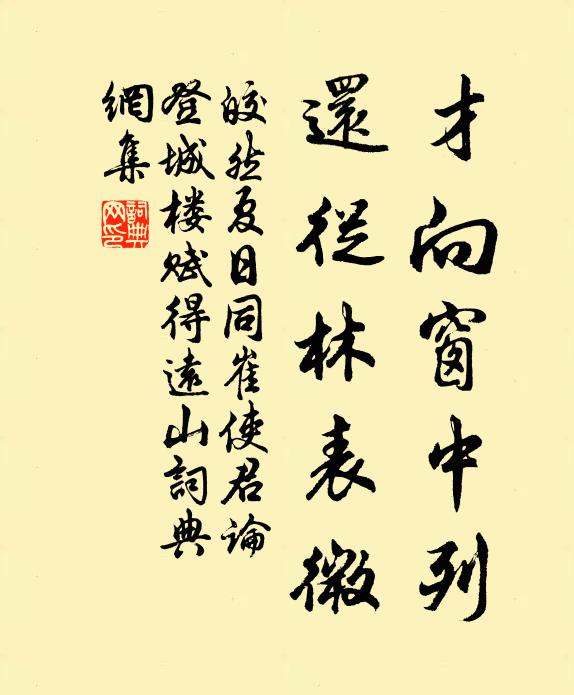 才向窗中列
還從林表微
皎然夏日同崔使君論
登城楼赋得遠山詞典
網集
詞典
网印